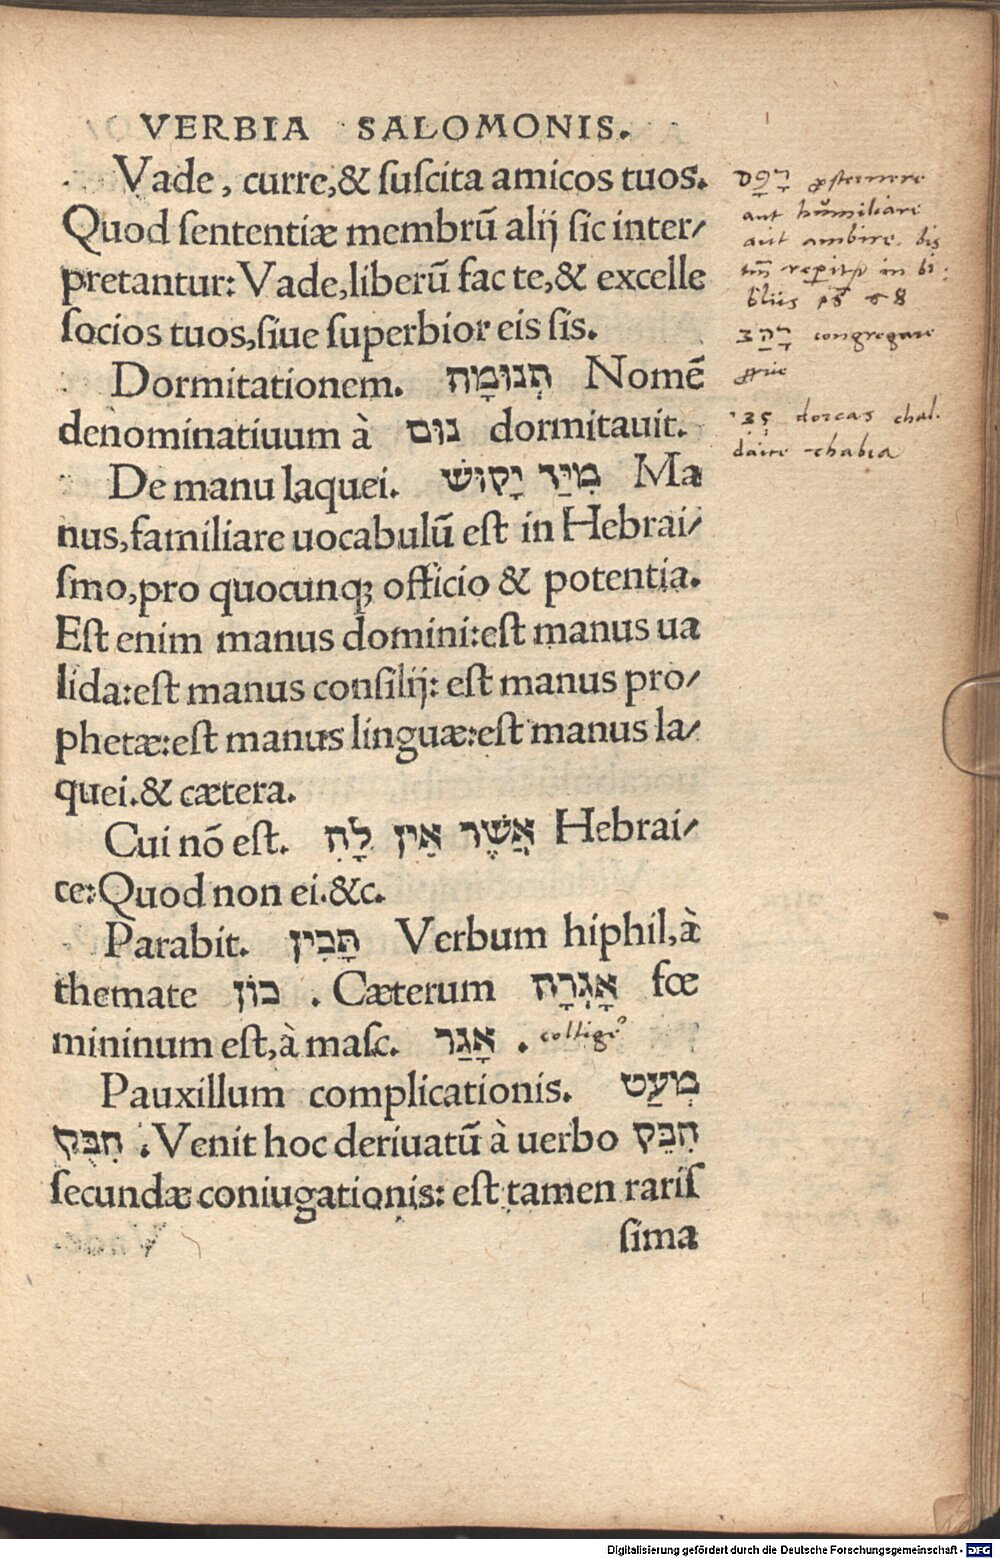 VERBIA SALOMONIS.
Vade, curre,& ſuſcita amicos tuos.
Quod ſententiæ membrũ alij ſic inter/
pretantur: Vade,liberũ fac te,& excelle
ſocios tuos,ſiue ſuperbior eis ſis.
Dormitationem. תְּנוּמָה Nomẽ
denominatiuum à נוּם dormitauit.
De manu laquei. מִיַּד יָקוּשׁ Ma
nus,familiare uocabulũ eſt in Hebrai/
ſmo,pro quocunqꝫ officio & potentia.
Eſt enim manus domini:eſt manus ua
lida:eſt manus conſilij: eſt manus pro/
phetæ:eſt manus linguæ:eſt manus la/
quei.& cætera.
Cui nõ eſt. אֲשֶׁר אֵין לָהּ Hebrai/
ce:Quod non ei.&c.
Parabit. תָּבִין Verbum hiphil,à
themate בּוֹן . Cæterum אָגְרָה fœ
mininum eſt,à maſc. אָגַר .
Pauxillum complicationis. מְעַט
חִבֻּק .Venit hoc deriuatũ à uerbo חִבֵּק
ſecundæ coniugationis: eſt tamen rariſ
ſima
רפס
aut humiliare
aut ambire. bis
in bi
bliis 68
רהב congregare
צבי dorcas chal.
Digitalisierung gefördert durch die Deutsche Forschungsgemeinschaft - DFG